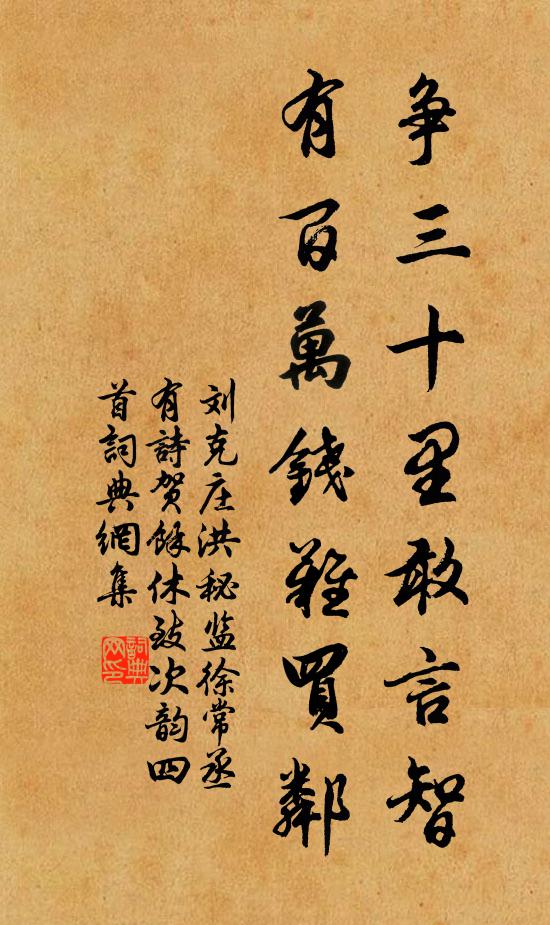 争三十里敢言智
有百萬錢難買鄰
刘克庄洪秘监徐常丞
有詩贺餘休致次韵四
首詞典網集
詞典
网印